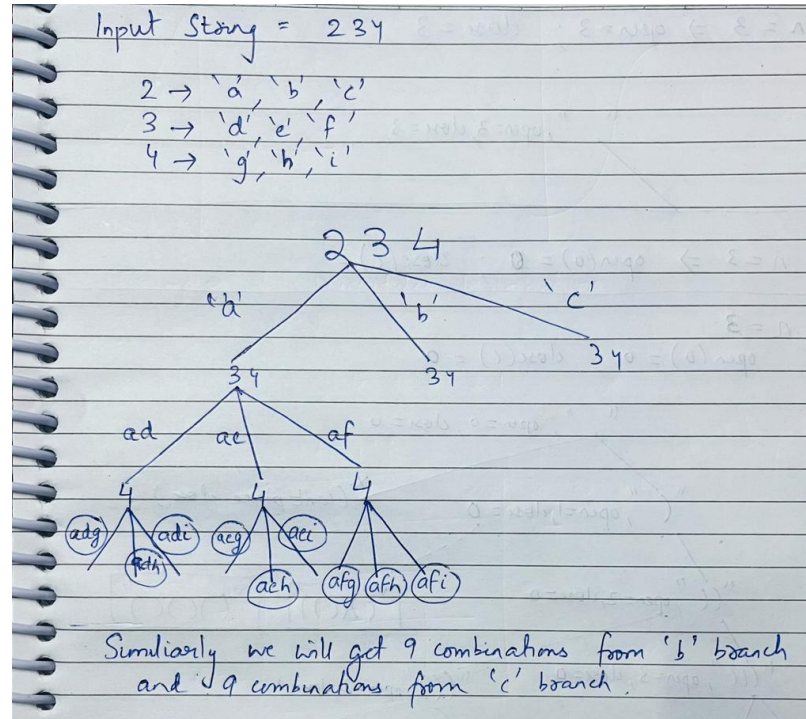 Input String = 234
2 → 'a', 'b', 'c'
3 → 'd', 'e', 'f'
4 → 'g', 'h', 'i'
2 3 4
'a' 'b' 'c'
34 34 34
ad ae af
4 4 4
adg adh adi aeg aeh aei afg afh afi
Similiarly we will get 9 combinations from 'b' branch
and 9 combinations from 'c' branch.